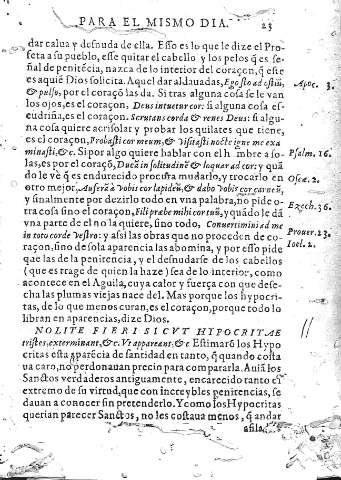 PARA EL MISMO DIA. 23
dar calua y desnuda de ella. Esso es lo que le dize el Pro-
feta a su pueblo, esse quitar el cabello y los pelos q̃ es se-
ñal de penitẽcia, nazca de lo interior del coraçon, q̃ este
es aquiẽ Dios solicita. Aquel dar aldauadas, Ego sto ad ostiũ,
& pulso, por el coraçõ las da. Si tras alguna cosa se le van
los ojos, es el coraçon, Deus intuetur cor: si alguna cosa es-
cudriña, es el coraçon. Scrutans corda & renes Deus: si algu-
na cosa quiere acrisolar y probar los quilates que tiene,
es el coraçõ, Probasti cor meum, & visitasti nocte igne me exa
minasti, &c. Si por algo quiere hablar con el hombre a so-
las, es por el coraçõ, Ducã in solitudinẽ & loquar ad cor: y quã
do le vè q̃ es endurecido procura mudarlo, y trocarlo en
otro mejor, Auferã à vobis cor lapideũ, & dabo vobis cor carneũ,
y finalmente por dezirlo todo en vna palabra, no pide o-
tra cosa sino el coraçon, Fili præbe mihi cor tuũ, y quãdo le dã
vna parte de el no la quiere, sino todo, Conuertimini ad me
in toto corde vestro: y assi las obras que no proceden de co-
raçon, sino de sola aparencia las abomina, y por esso pide
que las de la penitencia, y el desnudarse de los cabellos
(que es trage de quien la haze) sea de lo interior, como
acontece en el Aguila, cuya calor y fuerça con que dese-
cha las plumas viejas nace del. Mas porque los hypocri-
tas, de lo que menos curan, es el coraçon, porque todo lo
libran en aparencias, dize Dios.
NOLITE FIERI SICVT HYPOCRITAE
tristes, exterminant, &c. Vt appareant, &c Estimarõ los Hypo
critas esta aparẽcia de santidad en tanto, q̃ quando costa
ua caro, no perdonauan precio para compararla. Auiã los
Sanctos verdaderos antiguamente, encarecido tanto el
extremo de su virtud, que con increybles penitencias, se
dauan a conocer sin pretenderlo. Y como los Hypocritas
querian parecer Sanctos, no les costaua menos, q̃ andar
asila
Apoc. 3.
Psalm. 16.
Oseæ. 2.
Ezech. 36.
Prouer. 23.
Ioel. 2.